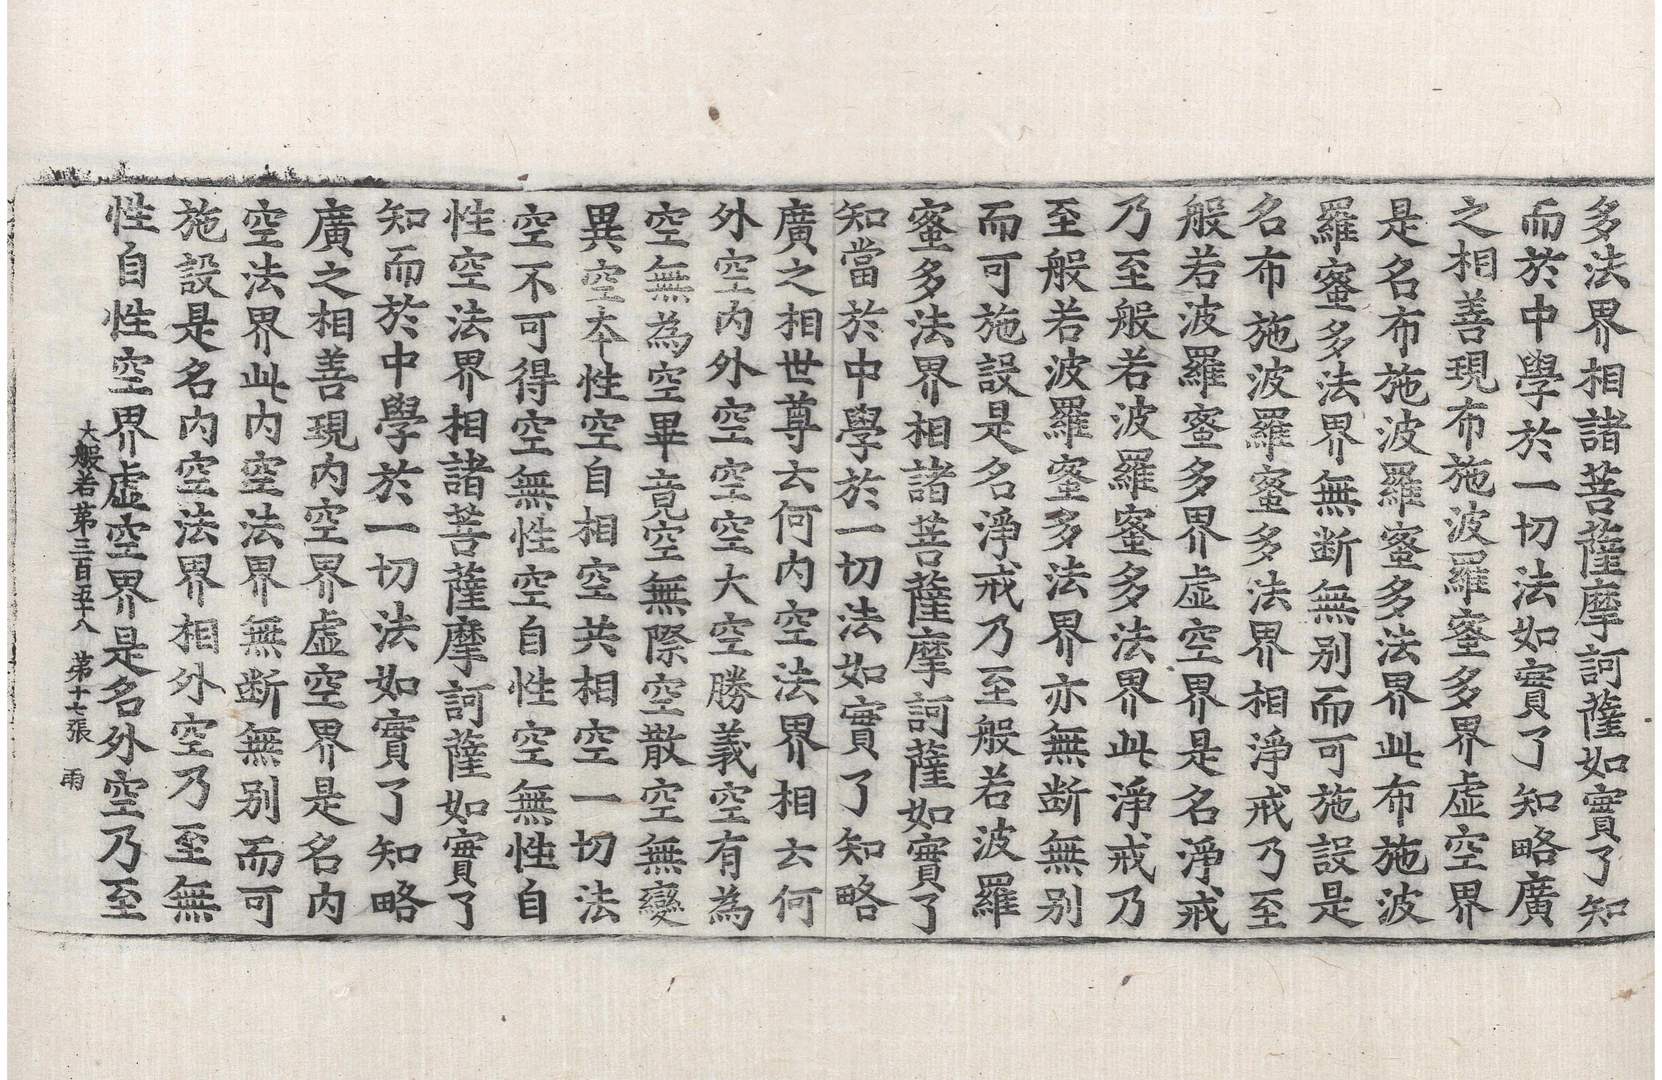 多法界相諸菩薩摩訶薩如實了知
而於中學於一切法如實了知略廣
之相善現布施波羅蜜多界虛空界
是名布施波羅蜜多法界此布施波
羅蜜多法界無断無别而可施設是
名布施波羅蜜多法界相淨戒乃至
般若波羅蜜多界虛空界是名淨戒
乃至般若波羅蜜多法界此淨戒乃
至般若波羅蜜多法界亦無断無别
而可施設是名淨戒乃至般若波羅
蜜多法界相諸菩薩摩訶薩如實了
知當於中學於一切法如實了知略
廣之相世尊云何內空法界相云何
外空內外空空空大空勝義空有為
空無為空畢竟空無際空散空無變
異空夲性空自相空共相空一切法
空不可得空無性空自性空無性自
性空法界相諸菩薩摩訶薩如實了
知而於中學於一切法如實了知略
廣之相善現內空界虛空界是名內
空法界此內空法界無断無别而可
施設是名內空法界相外空乃至無
性自性空界虛空界是名外空乃至
大般若第三百五十八 第十七張 雨